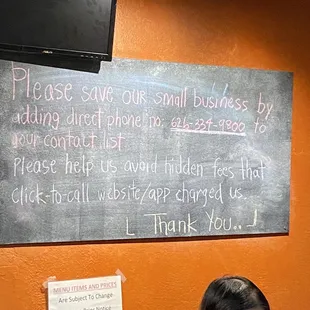 Please save our small business by
adding direct phone no: 626-334-9800 to
your contact list
Please help us avoid hidden fees that
click-to-call website/app charged us.
Thank You..
MENU ITEMS AND PRICES
Are Subject To Change